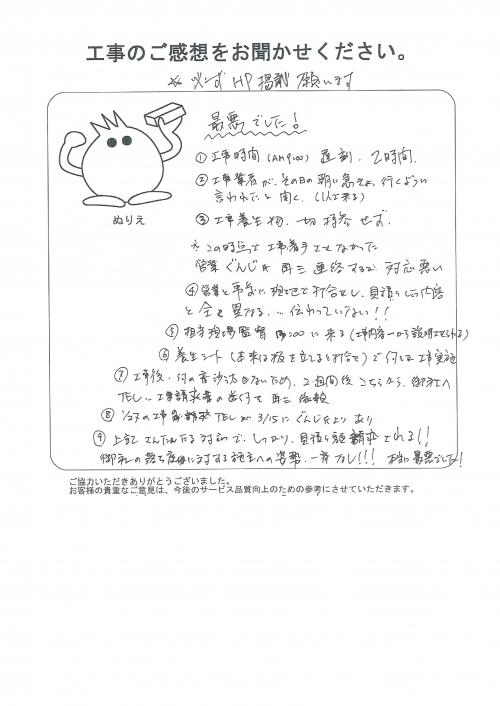 工事のご感想をお聞かせください。
※ 必ず HP 掲載 願います
最悪でした！
① 工事時間 (AM9:00) 遅刻. 2時間.
② 工事業者が、その日の朝に急きょ、行くように
言われたと聞く. (1人で来る)
③ 工事養生物. 一切 持参 せず.
ぬりえ
※ この時点で 工事着手させなかった
営業 ぐんじ氏 再三連絡するが 対応悪い
④ 営業と事前に現地で打合せし、見積りした内容
と全く異なる... 伝わっていない!!
⑤ 担当現場監督 PM:00に来る (工事内容一から説明させられる)
⑥ 養生シート (本来は板を立てると打合せ) で何とか工事実施
⑦ 工事後. 何の音沙汰もないため. 2週間後こちらから. 御社へ
TEL... 工事請求書の送付を再三依頼
⑧ 1/27の工事 請求 TELが 3/15にぐんじ氏よりあり
⑨ 上記さんたんたる対応で. しっかり. 見積り額請求される!!
御社の 対する施主への姿勢. 一斉なし!!! 本当に最悪でした!
ご協力いただきありがとうございました。
お客様の貴重なご意見は、今後のサービス品質向上のための参考にさせていただきます。